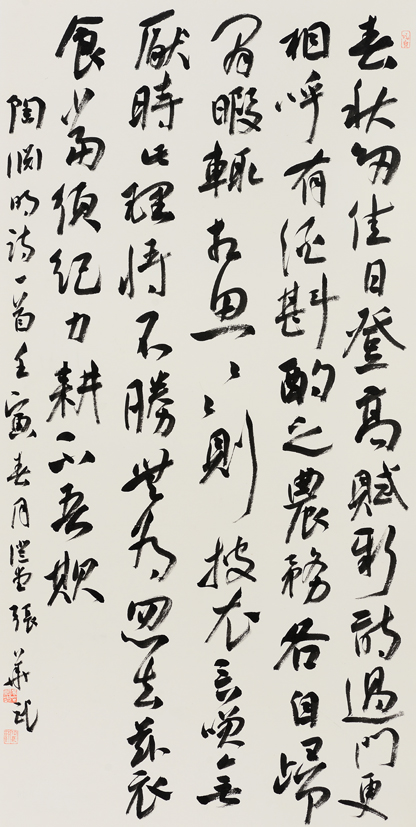 春秋多佳日登高賦新詩過門更
相呼有酒斟酌之農務各自歸
閒暇輒相思〻〻則披衣言笑無
厭時此理將不勝無為忽去茲衣
食當須紀力耕不吾欺
陶淵明詩一首壬寅春月堂張華